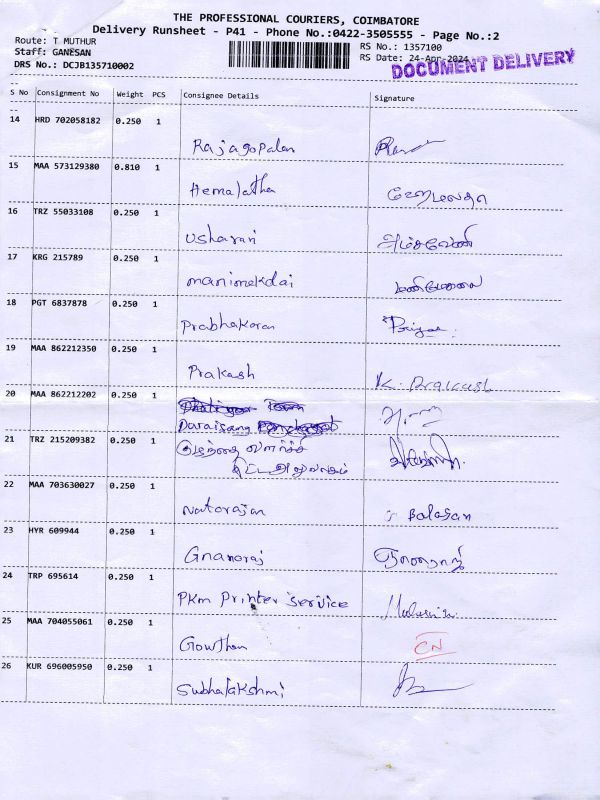 THE PROFESSIONAL COURIERS, COIMBATORE
Delivery Runsheet - P41 - Phone No.:0422-3505555 - Page No.:2
Route: T MUTHUR
Staff: GANESAN
DRS No.: DCJB135710002
RS No.: 1357100
RS Date: 24-Apr-2024
DOCUMENT DELIVERY
S No Consignment No Weight PCS Consignee Details Signature
14 HRD 702058182 0.250 1
Rajagopalan
15 MAA 573129380 0.810 1
Hemalatha ஹேமலதா
16 TRZ 55033108 0.250 1
Usharani
17 KRG 215789 0.250 1
manimekdai மணிமேகலை
18 PGT 6837878 0.250 1
Prabhakaran Priya
19 MAA 862212350 0.250 1
Prakash K. Prakash
20 MAA 862212202 0.250 1
Daraisamy
21 TRZ 215209382 0.250 1
குழந்தை வளர்ச்சி
திட்ட அலுவலகம்
22 MAA 703630027 0.250 1
Natarajan Balasan
23 HYR 609944 0.250 1
Gnanaraj ஞானராஜ்
24 TRP 695614 0.250 1
PKm Printer Service
25 MAA 704055061 0.250 1
Gowtham CN
26 KUR 696005950 0.250 1
Subhalakshmi